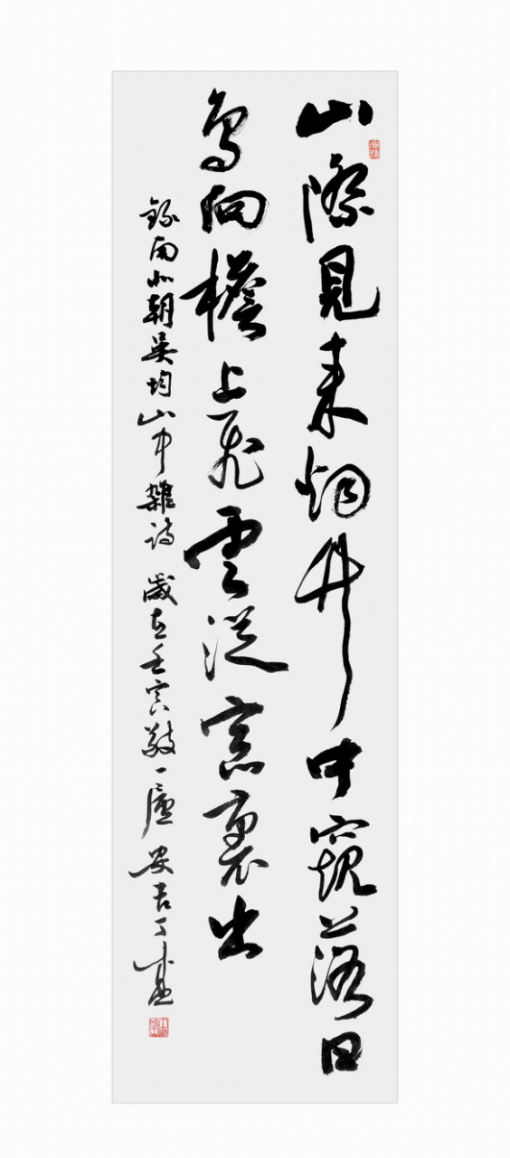 山際見来烟竹中窺落日
鳥向檐上飛雲從窓裏出
錄南北朝吳均山中雜詩 歲在壬寅敬一廬安吉丁